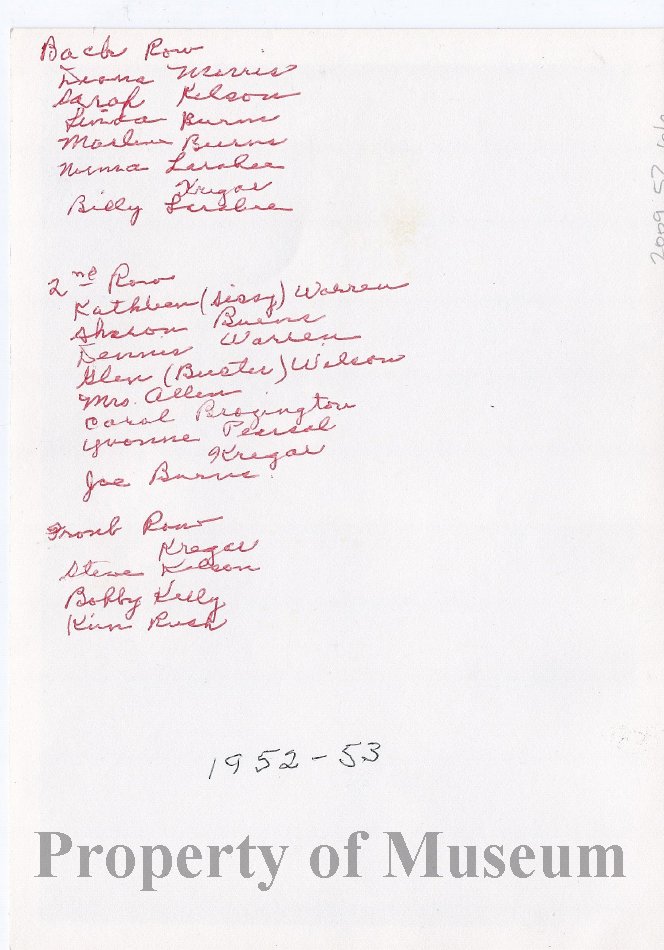 Back Row
Diana Morris
Sarah Kelson
Linda Burns
Marlene Burns
Norma Larabee
Kregar
Billy Larabee
2nd Row
Kathleen (Sissy) Warren
Sharon Burns
Dennis Warren
Glen (Buster) Wilson
Mrs. Allen
Carol Brozington
Yvonne Pearsal
Kregar
Joe Burns
Front Row
Kregar
Steve Kelson
Bobby Kelly
Kim Rush
1952-53
2009.57
Property of Museum